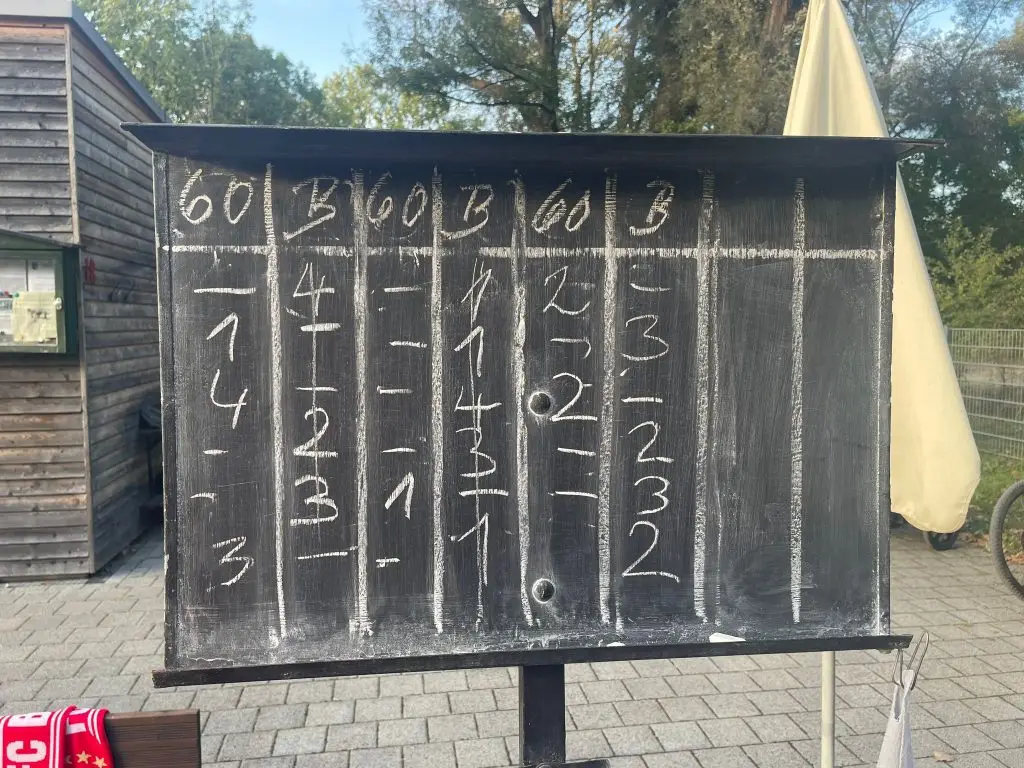 60 B 60 B 60 B
- 4 - 1 2 -
1 - - 1 - 3
4 - - 4 2 -
- 2 - 3 - 2
- 3 1 - - 3
3 - - 1 2
FC B